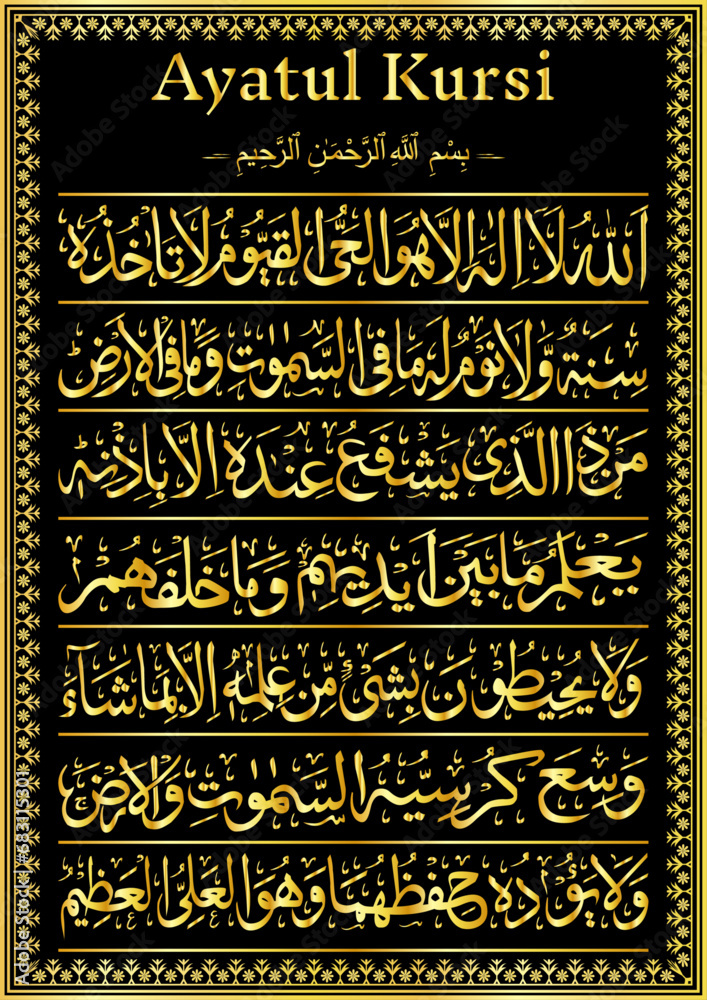 Ayatul Kursi
بِسْمِ ٱللَّهِ ٱلرَّحْمَـٰنِ ٱلرَّحِيمِ
اَللّٰهُ لَاۤ اِلٰهَ اِلَّا هُوَ الۡحَىُّ الۡقَيُّوۡمُ لَا تَاۡخُذُهٗ
سِنَةٌ وَّلَا نَوۡمٌ لَهٗ مَا فِى السَّمٰوٰتِ وَمَا فِى الۡاَرۡضِؕ
مَنۡ ذَا الَّذِىۡ يَشۡفَعُ عِنۡدَهٗۤ اِلَّا بِاِذۡنِهٖؕ
يَعۡلَمُ مَا بَيۡنَ اَيۡدِيۡهِمۡ وَمَا خَلۡفَهُمۡ
وَلَا يُحِيۡطُوۡنَ بِشَىۡءٍ مِّنۡ عِلۡمِهٖۤ اِلَّا بِمَا شَآءَ
وَسِعَ كُرۡسِيُّهُ السَّمٰوٰتِ وَالۡاَرۡضَ
وَلَا يَـُٔوۡدُهٗ حِفۡظُهُمَا وَهُوَ الۡعَلِىُّ الۡعَظِيۡمُ
Adobe Stock | #683115301